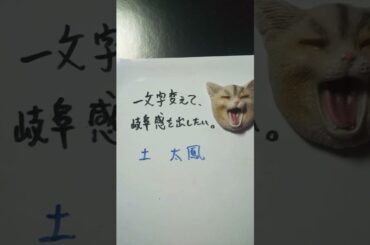 一文字変えて、
岐阜感を出したい。
土 太鳳
土